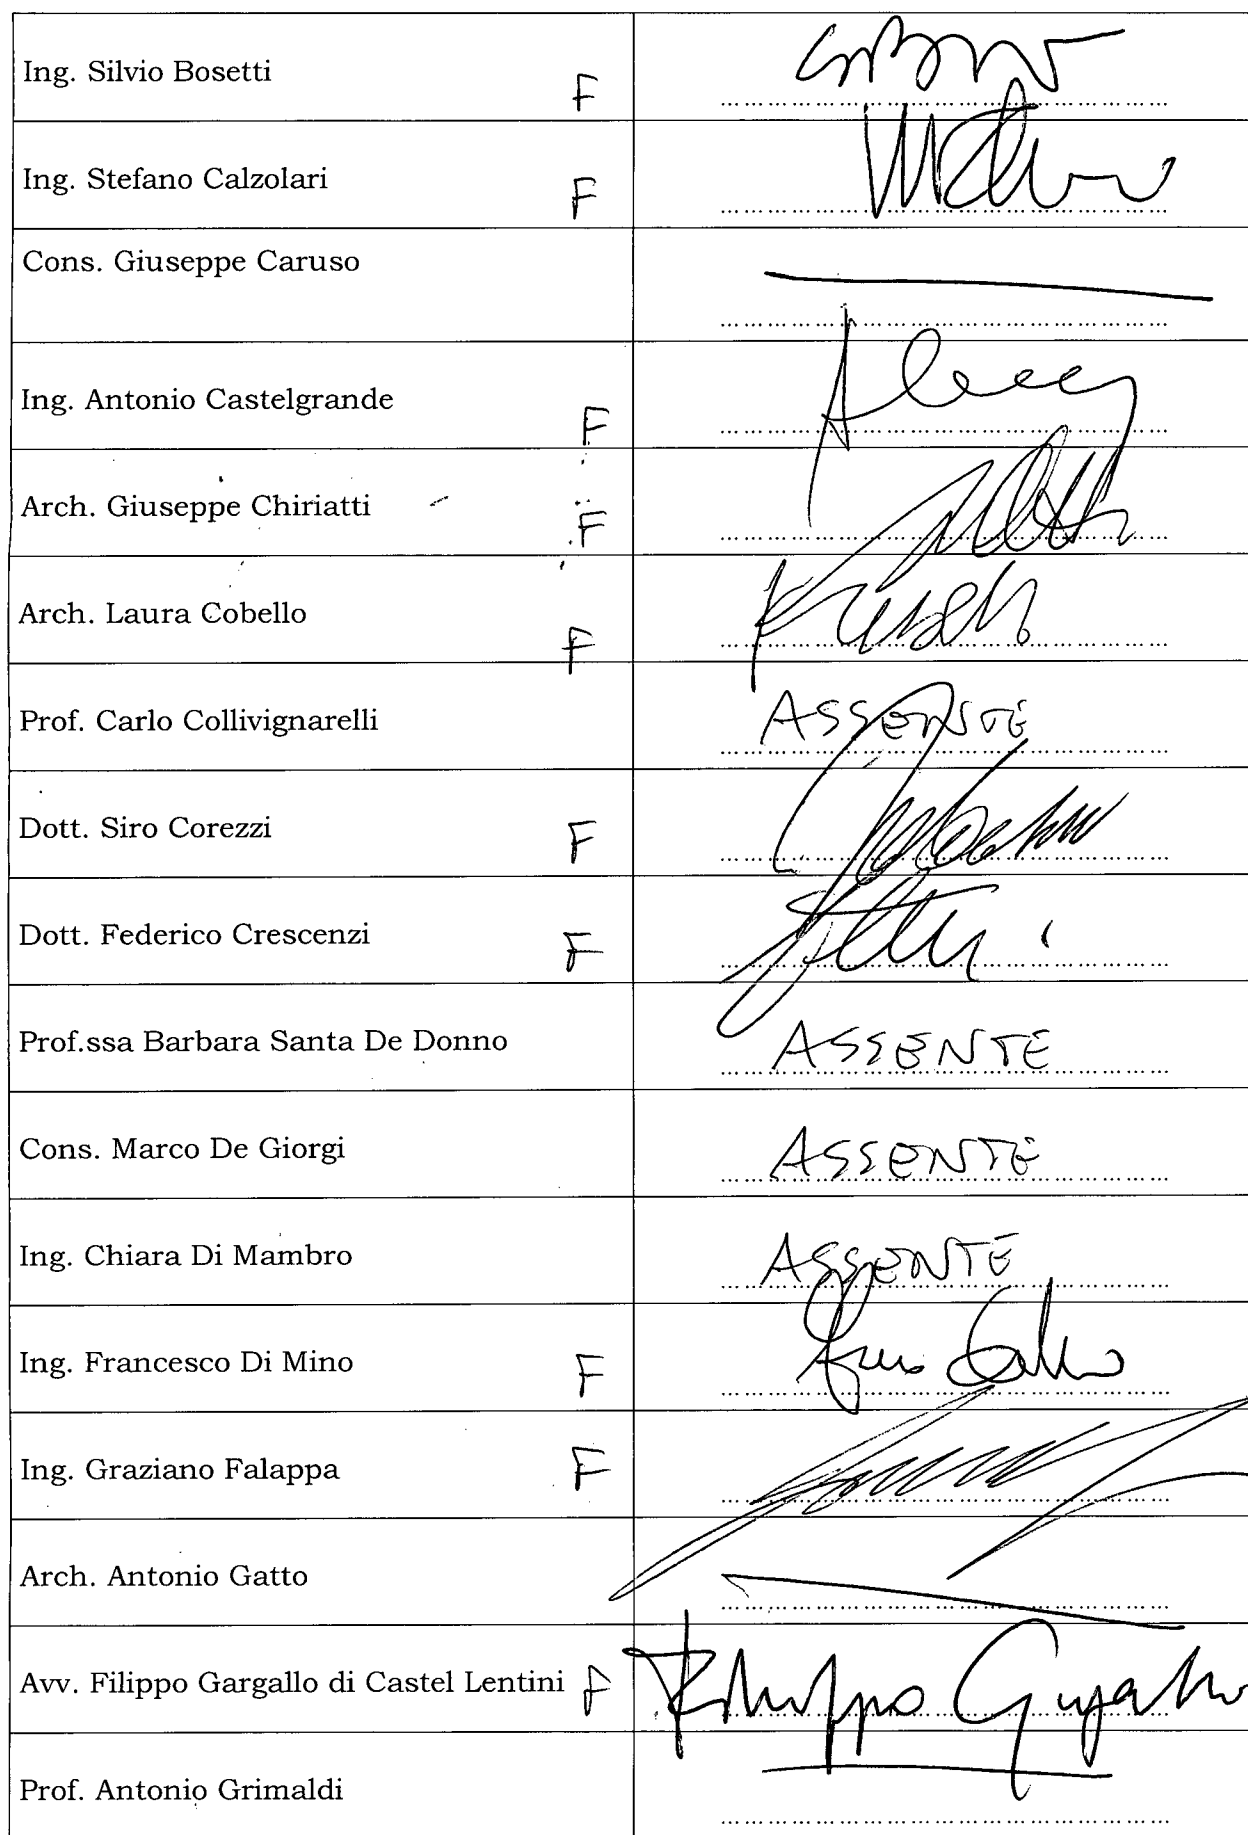 Ing. Silvio Bosetti F
Ing. Stefano Calzolari F
Cons. Giuseppe Caruso
Ing. Antonio Castelgrande F
Arch. Giuseppe Chiriatti F
Arch. Laura Cobello F
Prof. Carlo Collivignarelli ASSENTE
Dott. Siro Corezzi F
Dott. Federico Crescenzi F
Prof.ssa Barbara Santa De Donno ASSENTE
Cons. Marco De Giorgi ASSENTE
Ing. Chiara Di Mambro ASSENTE
Ing. Francesco Di Mino F
Ing. Graziano Falappa F
Arch. Antonio Gatto
Avv. Filippo Gargallo di Castel Lentini F Filippo Gargallo
Prof. Antonio Grimaldi